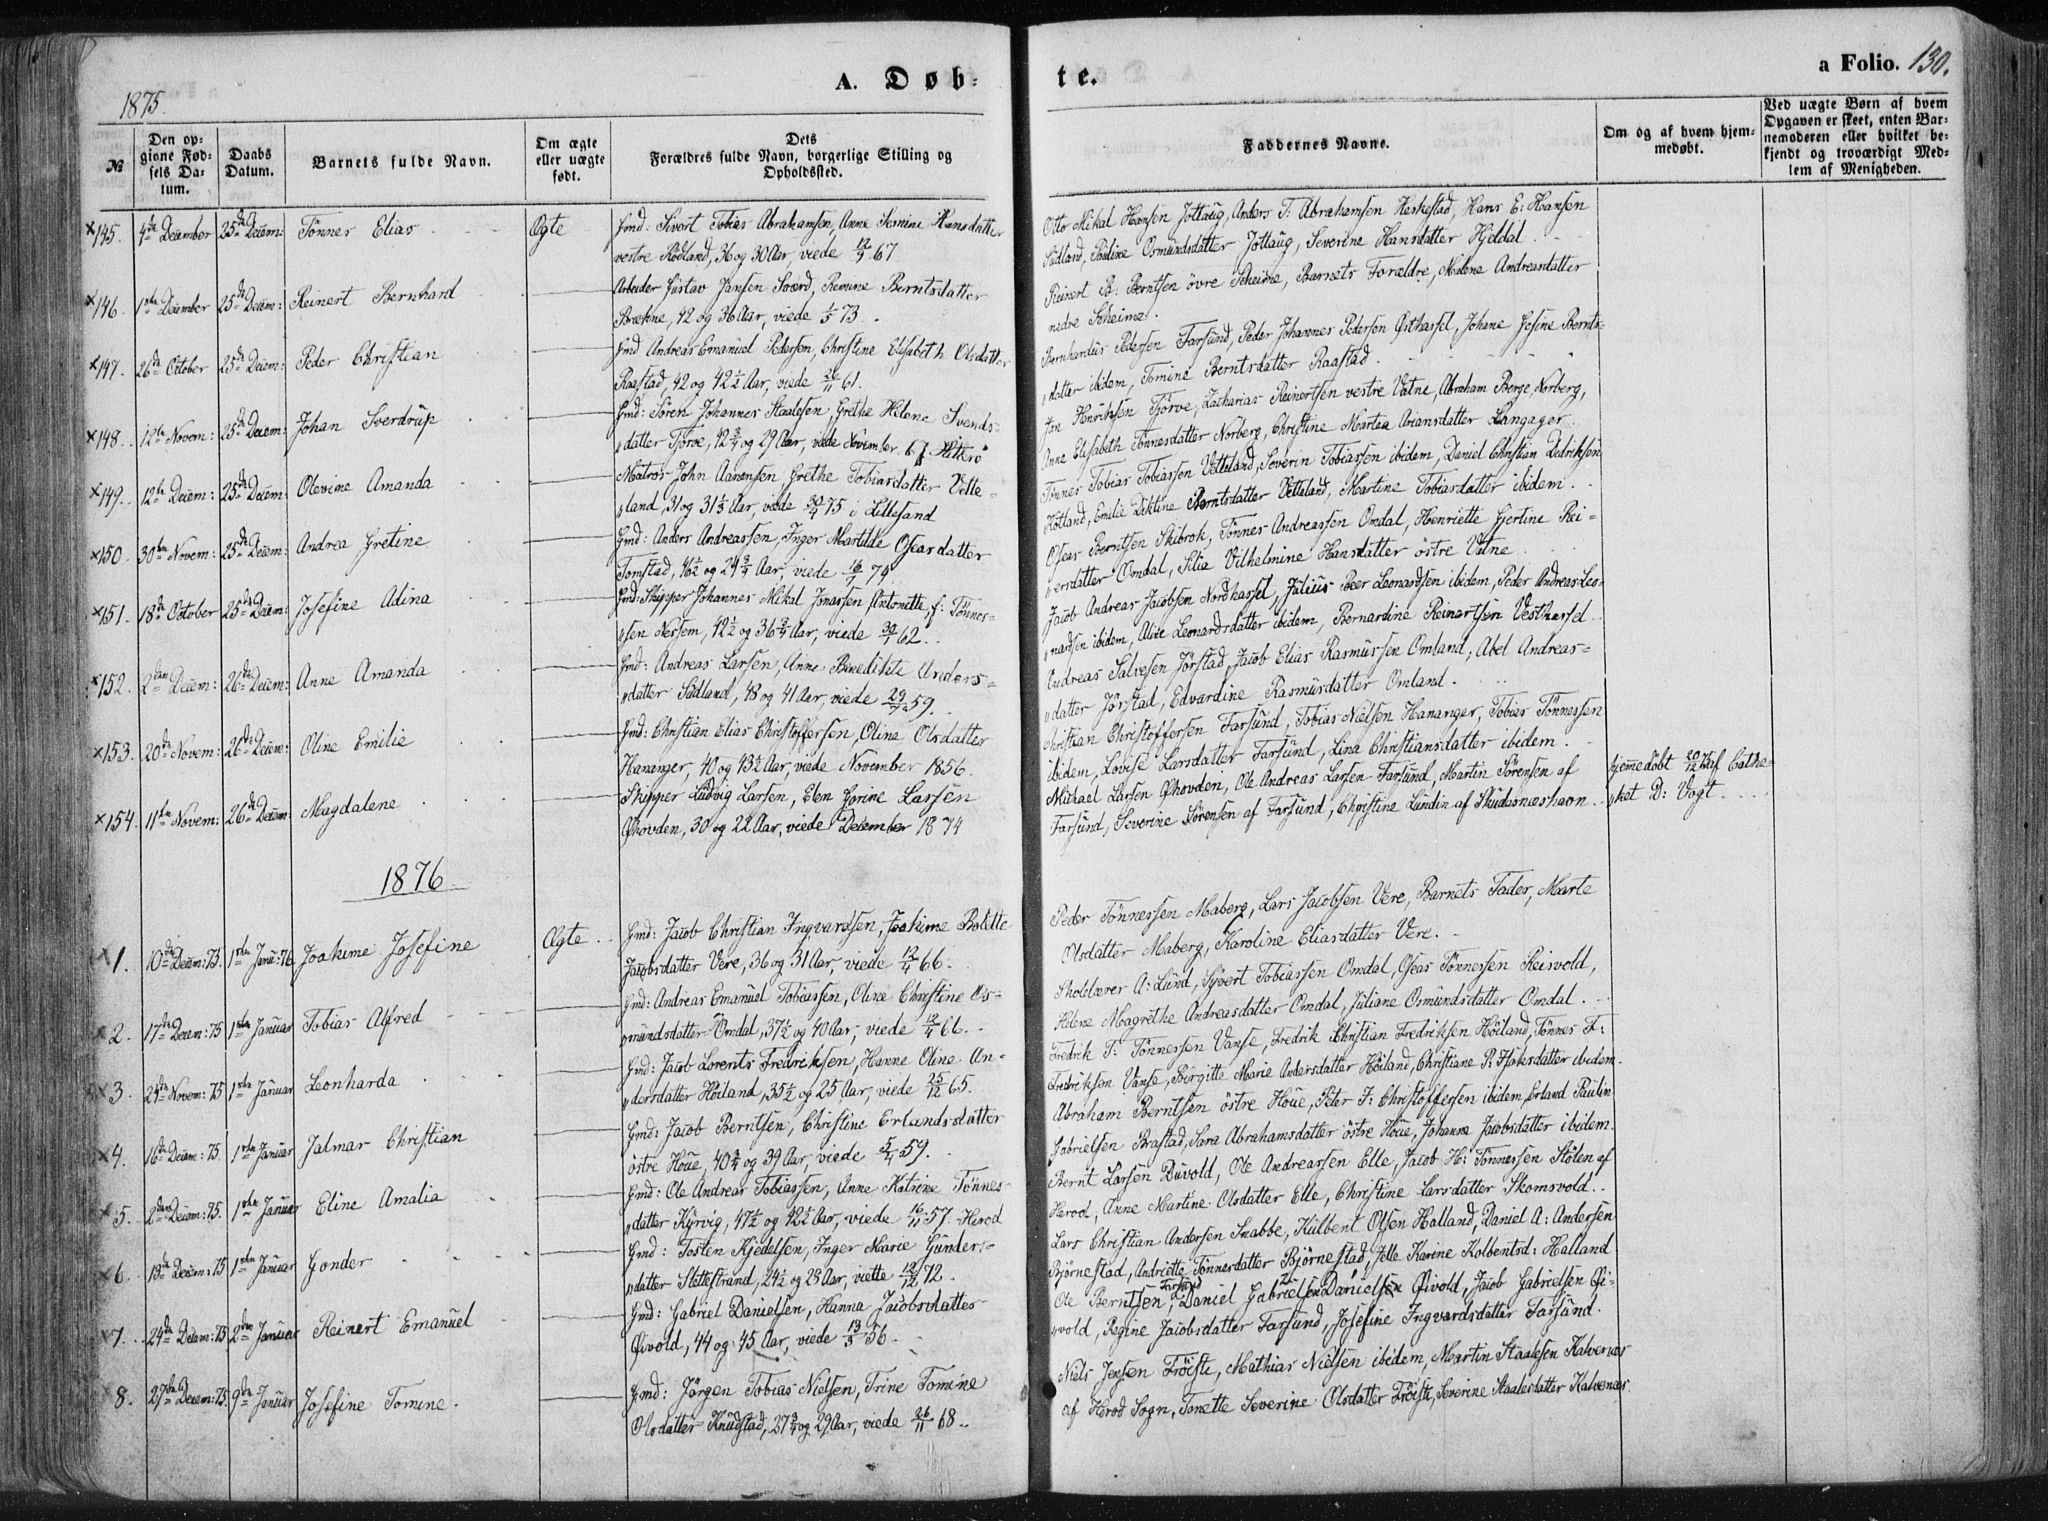 1875.
A. Døb=
te.
a Folio. 130.
№
Den op-
givne Fød-
sels Da-
tum.
Daabs
Datum.
Barnets fulde Navn.
Om ægte
eller uægte
født.
Dets
Forældres fulde Navn, borgerlige Stilling og
Opholdssted.
Faddernes Navne.
Om og af hvem hjem-
medøbt.
Ved uægte Børn af hvem
Opgaven er skeet, enten Bar-
nemoderen eller hvilket be-
kjendt og troværdigt Med-
lem af Menigheden.
×145. 4de December 25de Decem: Tönnes Elias Ægte Gmd: Sivert Tobias Abrahamsen, Anne Hansdatter
vestre Rödland, 36 og 30 Aar, viede 67
Otto Mikal Hansen Jottaug, Anders T: Abrahamsen Herkestad, Hans E: Hansen
Sädland, Pauline Osmundsdatter Jottaug, Severine Hansdatter Hjeldal
×146. 1ste December 25de Decem: Reinert Bernhard Arbeider Gustav Jansen Sværd, Remine Berntsdatter
Brækne, 42 og 36 Aar, viede 1/5 73.
Reinert B: Berntsen övre Scheime, Barnets Forældre, Malene Andreasdatter
nedre Scheime.
×147. 26de October 25de Decem: Peder Christian Gmd Andreas Emanuel Pedersen, Christine Elisabeth Olsdatter
Raastad, 42 og 42 1/2 Aar, viede 26/11 61.
Bernhardus Pedersen Farsund, Peder Johannes Pedersen Østhassel, Johane Gesine Bernts-
datter ibidem, Tomine Berntsdatter Raastad.
×148. 12te Novem: 25de Decem: Johan Sverdrup Gmd: Sören Johannes Staalesen, Grethe Helene Svends-
datter Tjörve, 42 3/4 og 29 Aar, viede November 67 Hitterö
Jon Henriksen Tjörve, Zacharias Reinertsen vestre Vatne, Abraham Berge Norberg,
Anne Elisabeth Tönnesdatter Norberg, Christine Martea Langager.
×149. 12te Decem: 25de Decem: Olevine Amanda Matros John Aanensen, Grethe Tobiasdatter Vette-
land, 31 og 31 1/3 Aar, viede 30/4 75 i Lillesand
Tönnes Tobias Tobiassen Vetteland, Severin Tobiassen ibidem, Daniel Christian Dedriksen
Kotland, Emilie Diktine Berntsdatter Vetteland, Martine Tobiasdatter ibidem.
×150. 30te Novem: 25de Decem: Andrea Gretine Gmd: Anders Andreassen, Inger Martilde Osearsdatter
Tomstad, 46 1/2 og 24 3/4 Aar, viede 74
Oseas Berntsen Skibrok, Tönnes Andreassen Omdal, Henriette Gjertine Rei-
ersdatter Omdal, Silia Vilhelmine Hansdatter östre Vatne
×151. 18de October 25de Decem: Josefine Adina Gmd: Skipper Johannes Mikal Jonassen, Antonette, f: Tönnes-
sen Nessem, 42 1/2 og 36 3/4 Aar, viede 62.
Jacob Andreas Jacobsen Nordhassel, Julius Peer Leonardsen ibidem, Peder Andreas Leo-
nardsen ibidem, Alise Leonardsdatter ibidem, Bernardine Reinertsen Vesthassel
×152. 2den Decem: 26de Decem: Anne Amanda Gmd: Andreas Larsen, Anne Benedikte Anders-
datter Sädland, 48 og 41 Aar, viede 59.
Andreas Salvesen Jörstad, Jacob Elias Rasmussen Omland, Abel Andreas-
datter Jörstad, Edvardine Rasmusdatter Omland.
×153. 20de Novem: 26de Decem: Oline Emilie Gmd: Christian Elias Christoffersen, Oline Olsdatter
Hananger, 40 og 43 1/2 Aar, viede November 1856.
Christian Christoffersen Farsund, Tobias Nielsen Hananger, Tobias Tönnessen
ibidem, Lovise Larsdatter Farsund, Lina Christiansdatter ibidem.
×154. 11te Novem: 26de Decem: Magdalene Skipper Ludvig Larsen, Elen Gorine Larsen
Øhovden, 30 og 22 Aar, viede December 1874
Michael Larsen Øhovden, Ole Andreas Larsen Farsund, Martin Sörensen af
Farsund, Severine Sörensen af Farsund, Christine Lundin af Skudesneshavn.
hjemedöbt 20/12 75 af Cathe-
ket D: Vogt.
1876
×1. 10de Decem: 75. 1ste Janu: 76 Joakime Josefine Ægte Gmd: Jacob Christian Ingvardsen, Joakime Bolette
Jacobsdatter Vere, 36 og 31 Aar, viede 12/4 66.
Peder Tönnessen Maberg, Lars Jacobsen Vere, Barnets Fader, Marte
Olsdatter Maberg, Karoline Eliasdatter Vere.
×2. 17de Decem: 75 1ste Januar Tobias Alfred Gmd: Andreas Emanuel Tobiassen, Oline Christine Os-
mundsdatter Omdal, 37 1/2 og 40 Aar, viede 12/4 66.
Skolelærer A: Lund, Syvert Tobiassen Omdal, Oseas Tönnessen Reisvold,
Helene Magrethe Andreasdatter Omdal, Juliane Osmundsdatter Omdal.
×3. 24de Novem: 75 1ste Januar Leonharda Gmd: Jacob Lorents Fredriksen, Hanne Oline An-
dersdatter Höiland, 35 1/2 og 25 Aar, viede 25/12 65.
Fredrik T: Tönnessen Vanse, Fredrik Christian Fredriksen Höiland, Tönnes F:
Fredriksen Vanse, Birgitte Marie Andersdatter Höiland, Christiane P: Isaksdatter ibidem.
×4. 16de Decem: 75. 1ste Januar Jalmar Christian Gmd: Jacob Berntsen, Christine Erlandsdatter
östre Houe, 40 3/4 og 39 Aar, viede 5/4 59.
Abraham Berntsen östre Houe, Peter F: Christoffersen ibidem, Erland Paulin
Gabrielsen Brastad, Sara Abrahamsdatter östre Houe, Johanna Jacobsdatter ibidem.
×5. 2den Decem: 75. 1ste Januar Eline Amalia Gmd: Ole Andreas Tobiassen, Anne Katrine Tönnes-
datter Kjörvig, 47 1/2 og 42 1/2 Aar, viede 16/11 57. Herod
Bernt Larsen Duvold, Ole Andreassen Elle, Jacob H: Tönnessen Stölen af
Herod, Anne Martine Olsdatter Elle, Christine Larsdatter Skomsvold.
×6. 13de Decem: 75 1ste Januar Gonder Gmd: Tosten Kjedelsen, Inger Marie Gunders-
datter Slettestrand, 24 1/2 og 25 Aar, viette 12/12 72.
Lars Christian Andersen Snabbe, Kulbent Olsen Halland, Daniel A: Andersen
Björnestad, Andriette Tönnesdatter Björnestad, Jelle Karine Kolbentsd: Halland
×7. 24de Decem: 75 2den Januar Reinert Emanuel Gmd: Gabriel Danielsen, Hanna Jacobsdatter
Øivold, 44 og 45 Aar, viede 13/5 56.
Ole Berntsen, Farsund Daniel Gabrielsen Danielsen Øivold, Jacob Gabrielsen Øi-
vold, Regine Jacobsdatter Farsund, Josefine Ingvardsdatter Farsund.
×8. 27de Decem: 75. 9de Januar Josefine Tomine. Gmd: Jörgen Tobias Nielsen, Trine Tomine
Olsdatter Knudstad, 27 3/4 og 29 Aar, viede 26/11 68.
Niels Jensen Tröisti, Mathias Nielsen ibidem, Martin Staalesen Kalvenæs
af Herod Sogn, Tonette Severine Olsdatter Tröisti, Severine Staalesdatter Kalvenæs